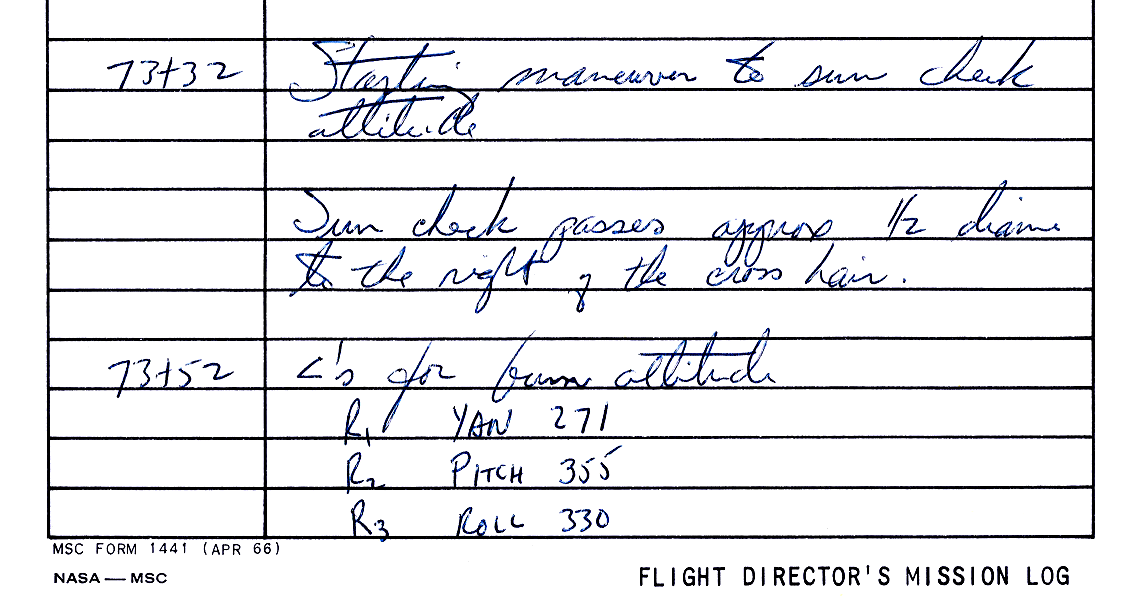 73+32 Starting maneuver to sun check
attitude
Sun check passes approx 1/2 diame
to the right of the cross hair.
73+52 <'s for burn attitude
R1 YAW 271
R2 PITCH 355
R3 ROLL 330
MSC FORM 1441 (APR 66)
NASA — MSC
FLIGHT DIRECTOR'S MISSION LOG